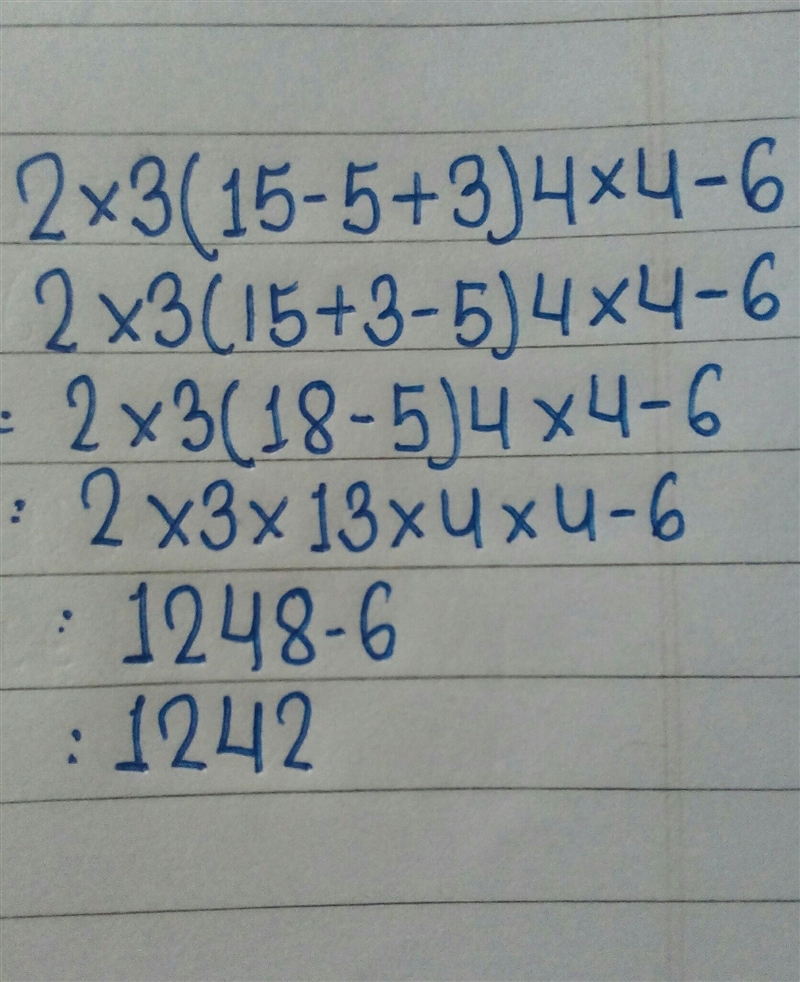 2×3(15-5+3)4×4-6
2×3(15+3-5)4×4-6
= 2×3(18-5)4×4-6
: 2×3×13×4×4-6
: 1248-6
: 1242